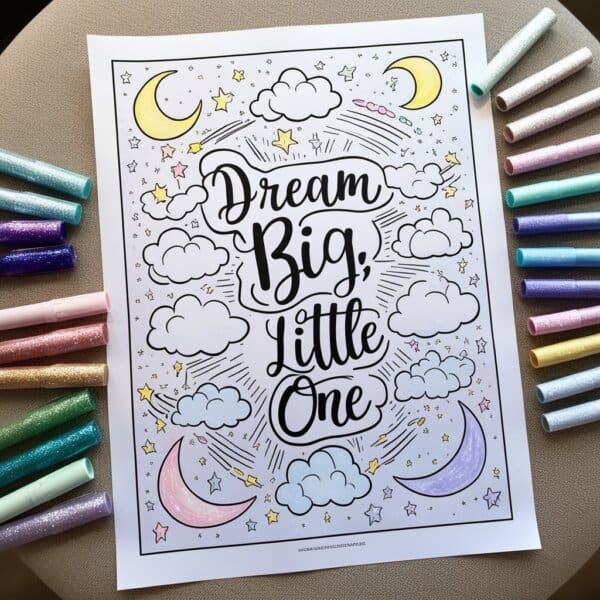 Dream
Big,
Little
One